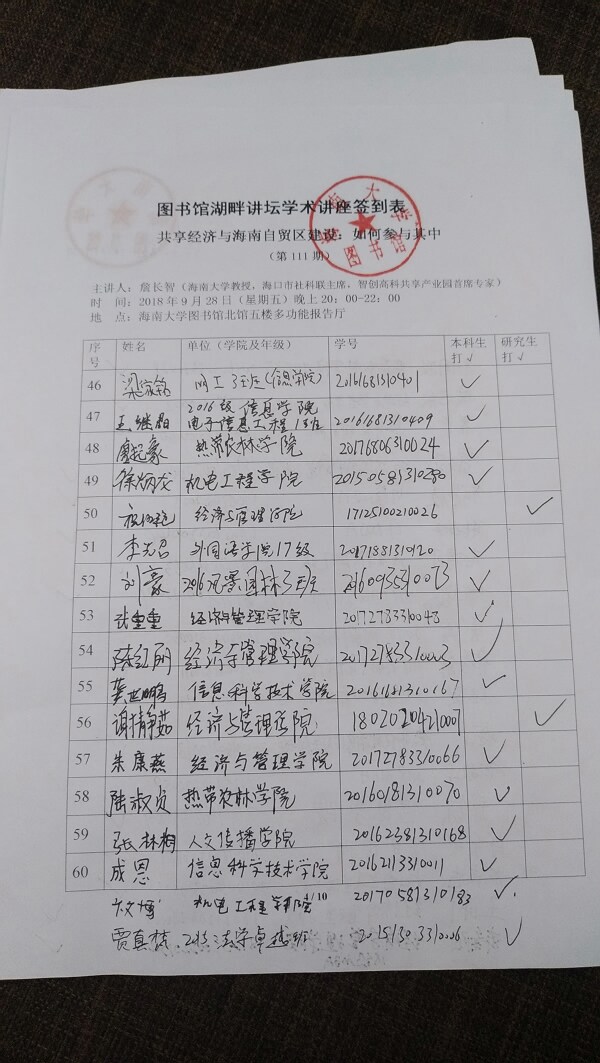 图书馆湖畔讲坛学术讲座签到表
共享经济与海南自贸区建设：如何参与其中
（第 111 期）
主讲人：詹长智（海南大学教授，海口市社科联主席，智创高科共享产业园首席专家）
时 间：2018 年 9 月 28 日（星期五）晚上 20：00-22：00
地 点：海南大学图书馆北馆五楼多功能报告厅
序号 姓名 单位（学院及年级） 学号 本科生打√ 研究生打√
46 网工3班(信息学院) 20161681310401 ✓
47 王继相 2016级信息学院电子信息工程1班 20161681310409 ✓
48 热带农林学院 20176806310024 ✓
49 徐炳龙 机电工程学院 20150581310280 ✓
50 经济与管理学院 17125100210026 ✓
51 李光召 外国语学院17级 20171881310120 ✓
52 刘豪 2016风景园林3班 20160935310073 ✓
53 张重重 经济与管理学院 20172783310048 ✓
54 陈红丽 经济与管理学院 20172783310003 ✓
55 龚世鹏 信息科学技术学院 20161681310167 ✓
56 谢静茹 经济与管理学院 18020204210007 ✓
57 朱康燕 经济与管理学院 20172783310066 ✓
58 陆淑贞 热带农林学院 20160181310070 ✓
59 张林桐 人文传播学院 20162381310168 ✓
60 成恩 信息科学技术学院 20162113310011 ✓
机电工程学院 20170581310183 ✓
贾真梵 2015法学卓越班 20151303310006 ✓
10
海南大学
图书馆